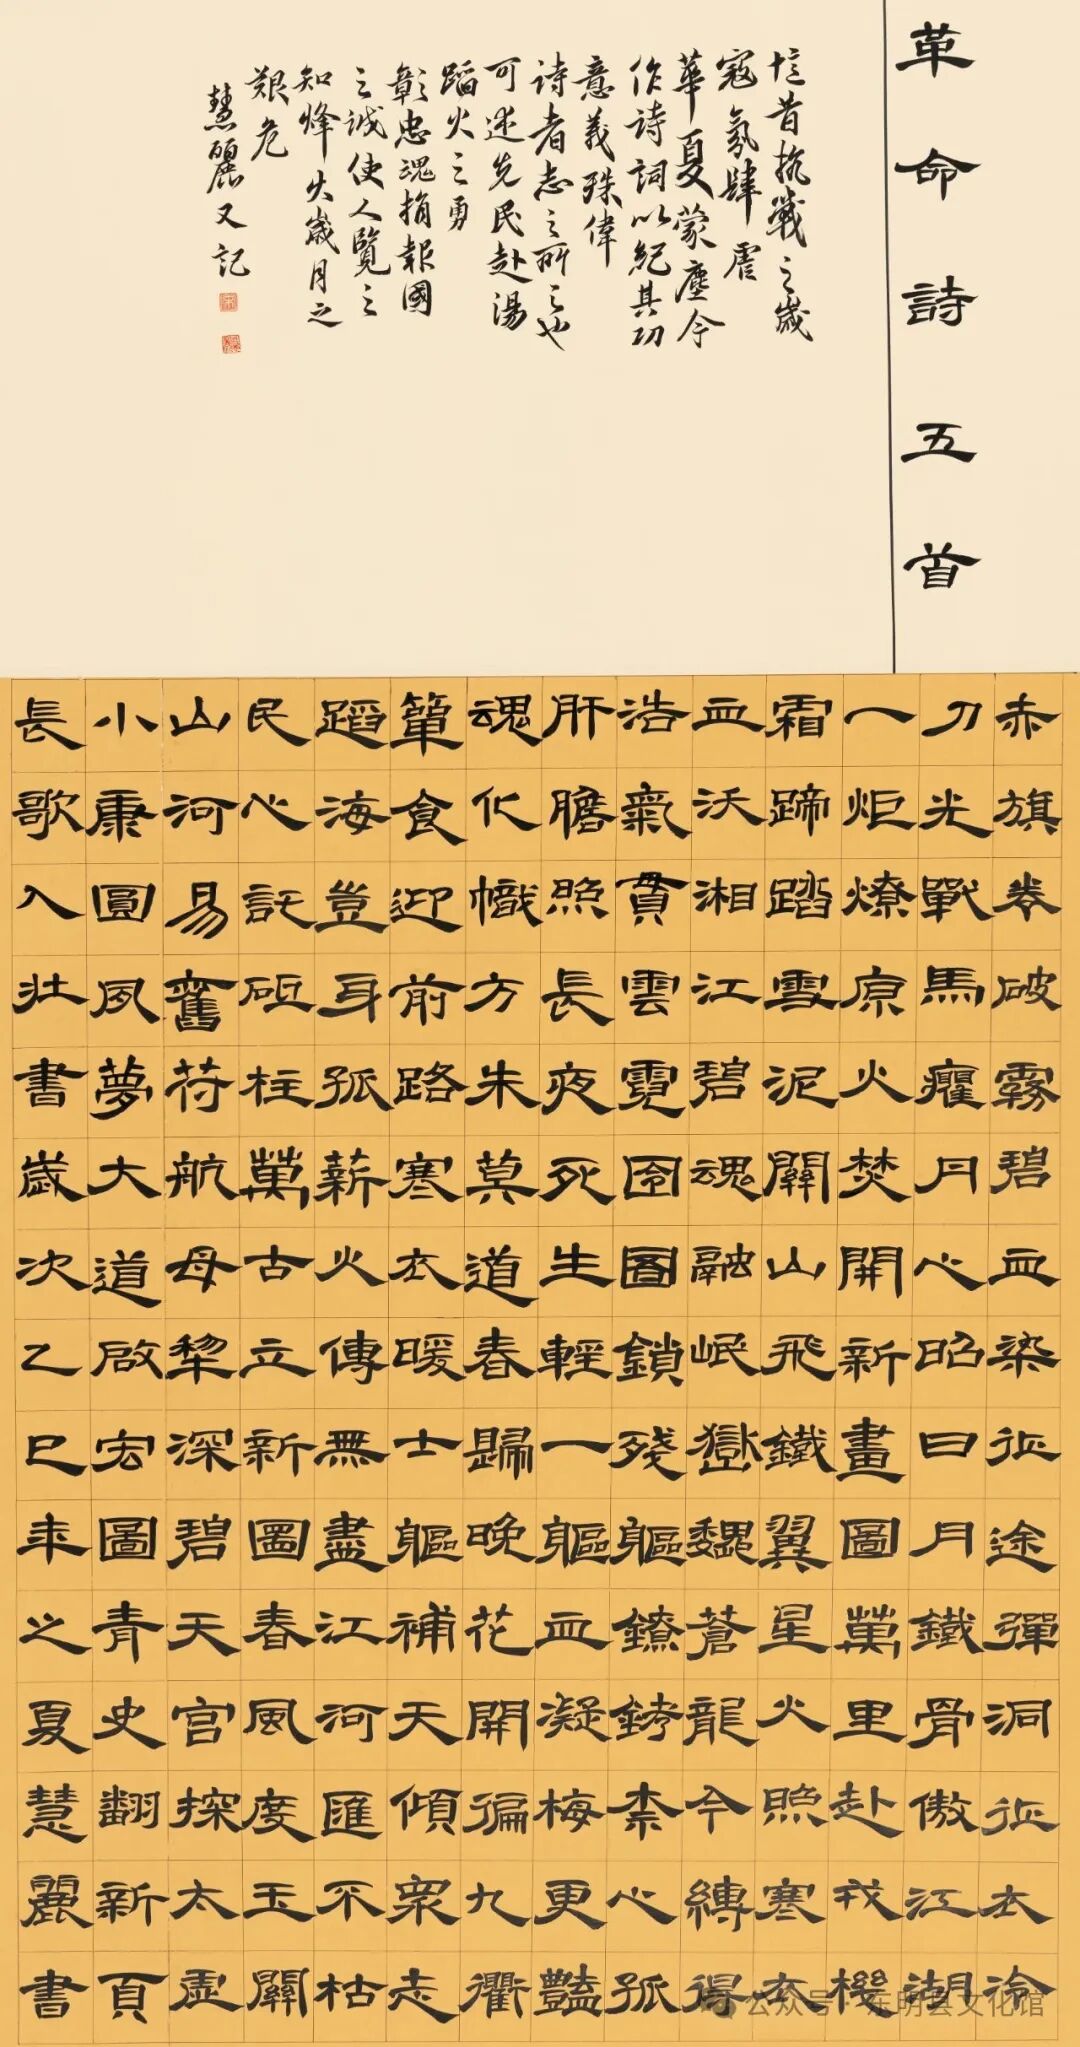 革命詩五首
忆昔抗戰之歲
寇氛肆虐
華夏蒙塵今
作詩詞以紀其功
意義殊偉
詩者志之所之也
可述先民赴湯
蹈火之勇
彰忠魂捐報國
之誠使人覽之
知烽火歲月之
艱危
慧麗又記
赤旗卷破霧碧血染征途彈洞征衣冷
刀光戰馬癯丹心昭日月鐵骨傲江湖
一炬燎原火焚開新畫圖萬里赴戎機
霜蹄踏雪泥關山飛鐵翼星火照寒衣
血沃湘江碧魂融岷嶽巍蒼龍今縛得
浩氣貫雲霓囹圄鎖殘軀鐐銬柰心孤
肝膽照長夜死生輕一軀血凝梅更豔
魂化幟方朱莫道春歸晚花開徧九衢
簞食迎前路寒衣暖士軀補天傾衆志
蹈海豈身孤薪火傳無盡江河匯不枯
民心託砥柱萬古立新圖春風度玉關
山河易舊符航母犁深碧天宮探太虛
小康圓夙夢大道啟宏圖青史翻新頁
長歌入壯書歲次乙巳年之夏慧麗書
公众号·东明县文化馆